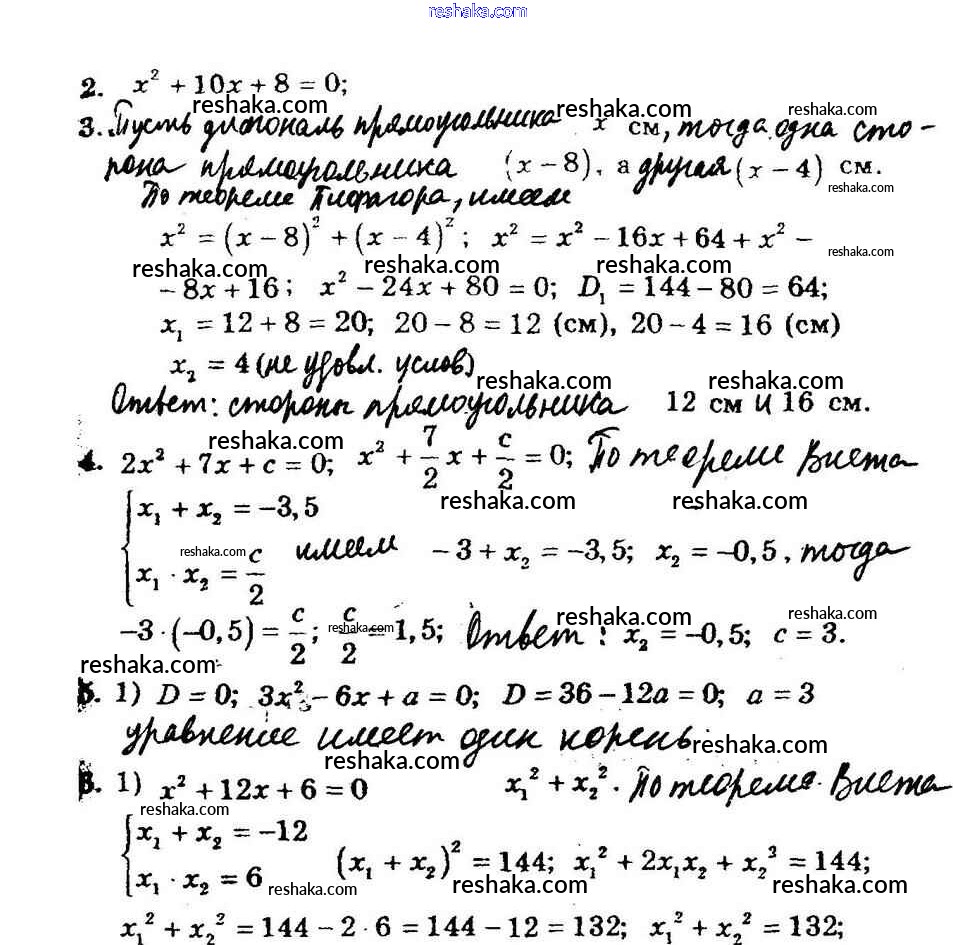 reshaka.com
2. x² + 10x + 8 = 0;
reshaka.com reshaka.com reshaka.com
3. Пусть диагональ прямоугольника x см, тогда одна сто-
рона прямоугольника (x − 8), а другая (x − 4) см.
reshaka.com
По теореме Пифагора, имеем
x² = (x − 8)² + (x − 4)²; x² = x² − 16x + 64 + x² −
reshaka.com reshaka.com reshaka.com reshaka.com
− 8x + 16; x² − 24x + 80 = 0; D₁ = 144 − 80 = 64;
x₁ = 12 + 8 = 20; 20 − 8 = 12 (см), 20 − 4 = 16 (см)
x₂ = 4 (не удовл. услов)
reshaka.com reshaka.com
Ответ: стороны прямоугольника 12 см и 16 см.
reshaka.com
4. 2x² + 7x + c = 0; x² + 7/2 x + c/2 = 0; По теореме Виета
reshaka.com reshaka.com
{ x₁ + x₂ = −3,5
имеем −3 + x₂ = −3,5; x₂ = −0,5, тогда
reshaka.com
x₁ · x₂ = c/2
reshaka.com reshaka.com reshaka.com
−3 · (−0,5) = c/2; c/2 = 1,5; Ответ: x₂ = −0,5; c = 3.
reshaka.com
5. 1) D = 0; 3x² − 6x + a = 0; D = 36 − 12a = 0; a = 3
уравнение имеет один корень.
reshaka.com reshaka.com
6. 1) x² + 12x + 6 = 0 x₁² + x₂². По теореме Виета
reshaka.com reshaka.com
{ x₁ + x₂ = −12
x₁ · x₂ = 6 (x₁ + x₂)² = 144; x₁² + 2x₁x₂ + x₂³ = 144;
reshaka.com reshaka.com reshaka.com
x₁² + x₂² = 144 − 2 · 6 = 144 − 12 = 132; x₁² + x₂² = 132;